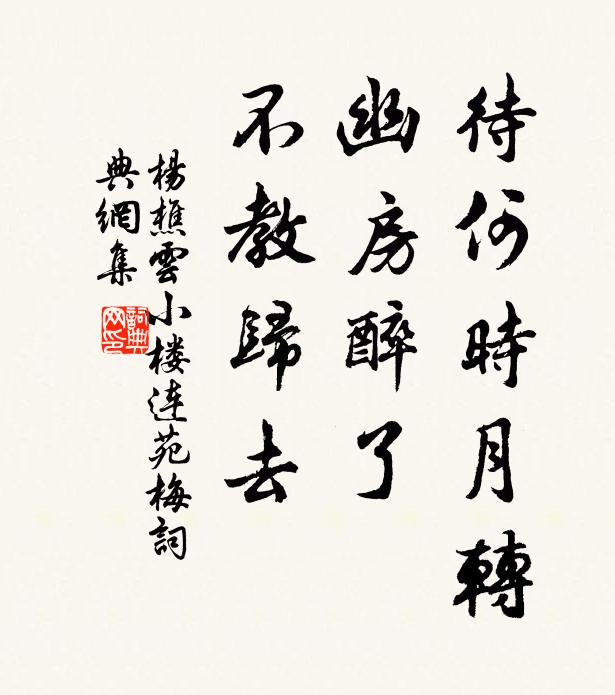 待何時月轉
幽房醉了
不教歸去
楊樵雲小楼連苑梅詞
典網集
詞典网印